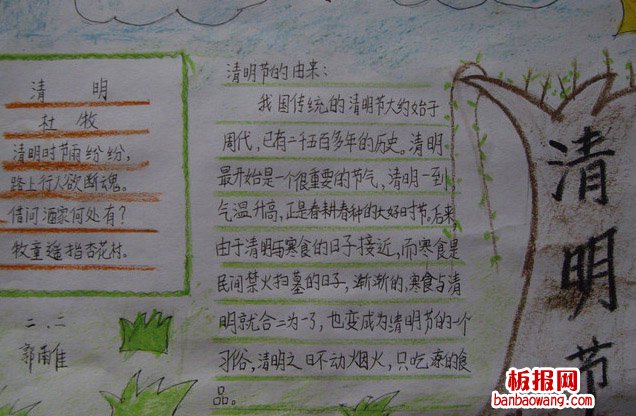 清 明
杜 牧
清明时节雨纷纷，
路上行人欲断魂。
借问酒家何处有？
牧童遥指杏花村。
二、二
清明节的由来：
我国传统的清明节大约始于
周代，已有二千五百多年的历史。清明
最开始是一个很重要的节气，清明一到，
气温升高，正是春耕春种的大好时节。后来，
由于清明与寒食的日子接近，而寒食是
民间禁火扫墓的日子，渐渐的，寒食与清
明就合二为一了，也变成为清明节的一个
习俗，清明之日不动烟火，只吃凉的食
品。
清明节
板报网
banbaowang.com